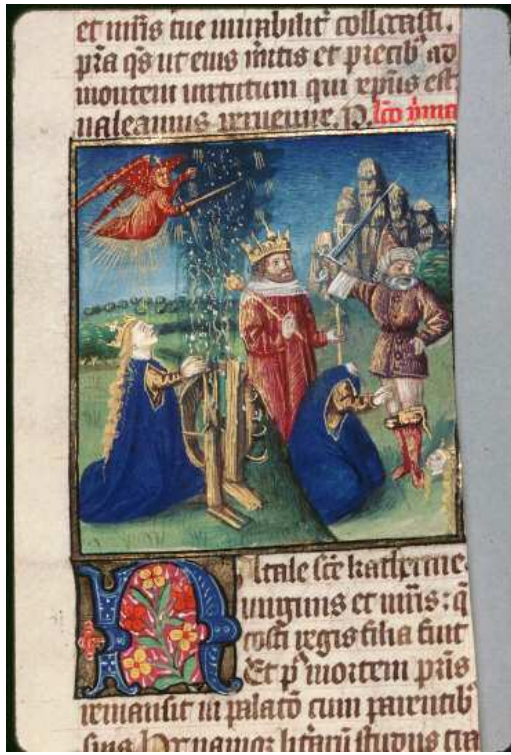 et mr̄is tue mirabilit̾ collocasti.
p̄ta q̄s ut eius m̾itis et precib̾ ad
montem virtutum qui xp̄us est
valeamus pervenire. P. l̄co p̄ma
Natale sc̄e katherine
virginis et mr̄is: q̄
costi regis filia fuit
Et p̾ mortem pr̄is
remansit in palatio cum parentib̾
suis